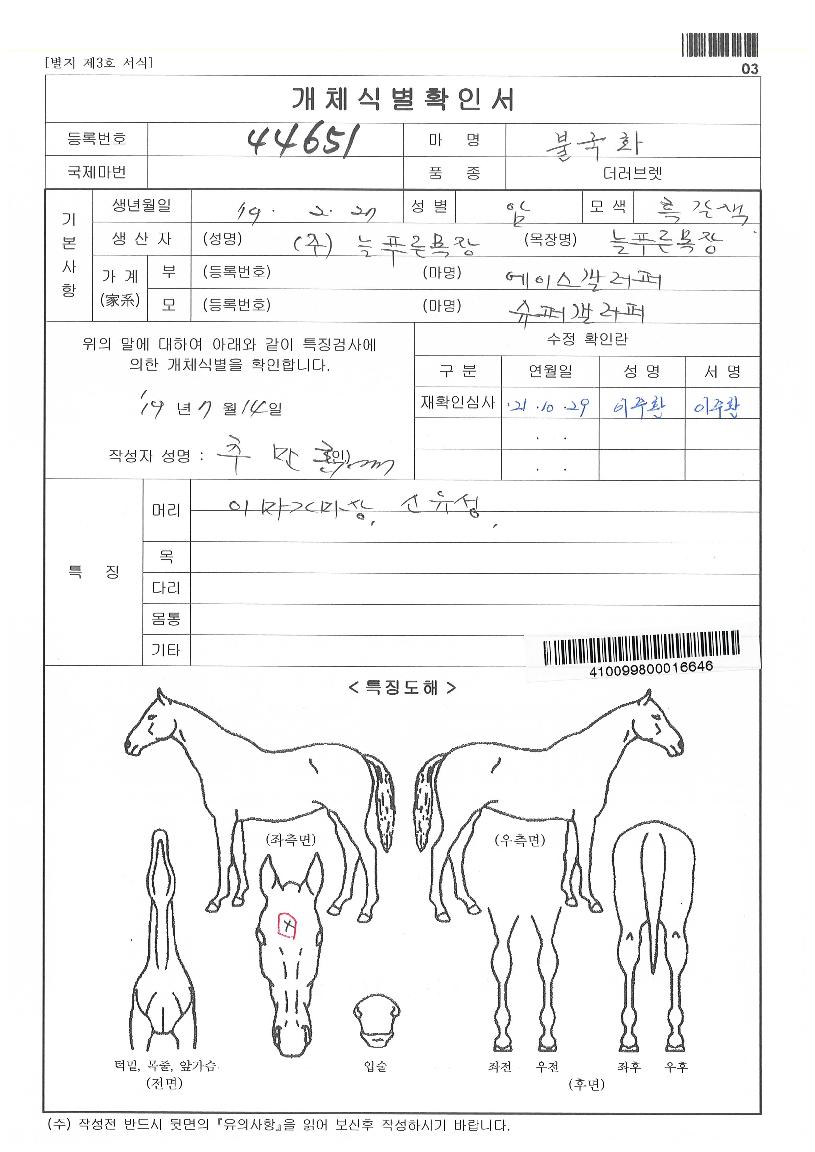 [별지 제3호 서식]
03
개체식별확인서
등록번호 44651 마 명 불국화
국제마번 품 종 더러브렛
기본사항
생년월일 '19. 2. 27 성 별 암 모 색 흑갈색
생 산 사 (성명) (주) 늘푸른목장 (목장명) 늘푸른목장
가 계 (家系) 부 (등록번호) (마명) 에이스갤러퍼
모 (등록번호) (마명) 슈퍼갤러퍼
위의 말에 대하여 아래와 같이 특징검사에
의한 개체식별을 확인합니다.
'19 년 7 월 14 일
작성자 성명 : (인)
수정 확인란
구 분 연월일 성 명 서 명
재확인심사 '21.10.29 이주환 이주환
. .
. .
특 징
머리
목
다리
몸통
기타
410099800016646
< 특징도해 >
(좌측면) (우측면)
턱밑, 목줄, 앞가슴 입술 좌전 우전 좌후 우후
(전면) (후면)
(수) 작성전 반드시 뒷면의 『유의사항』을 읽어 보신후 작성하시기 바랍니다.